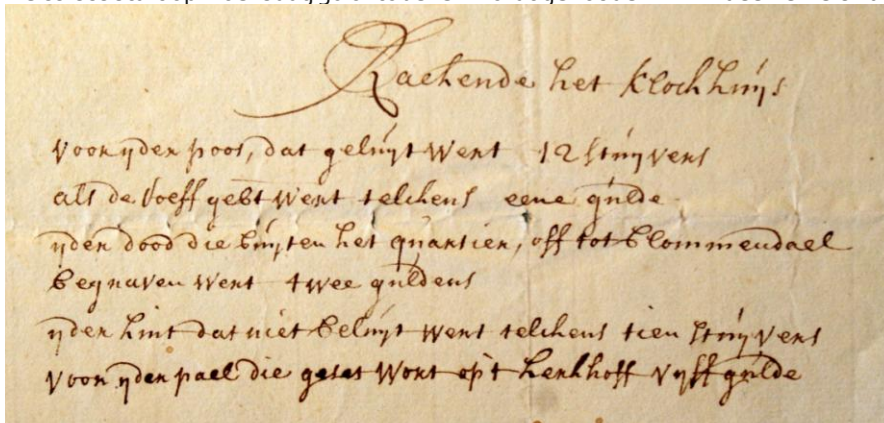 Raekende het klockhuys
voor yder poos, dat geluyt wert 12 stuyvers
als de gebt wert telckens eene gulde
yder dood die buyten het quartier, off tot blommendael
begraven wert twee guldens
yder kint dat niet beluyt wert telckens tien stuyvers
voor yder pael die geset wort op't kerkhoff vyff gulde